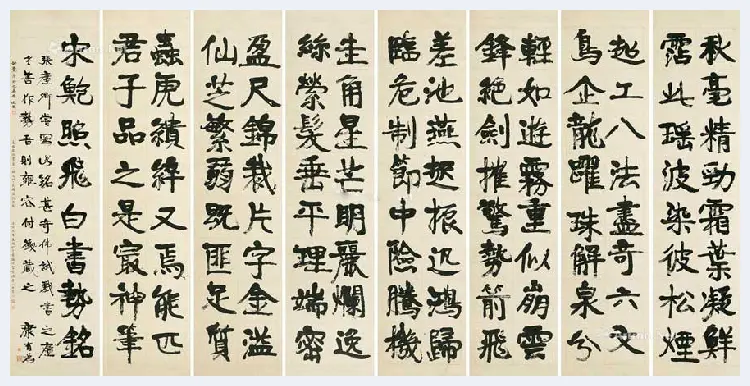 秋毫精勁霜葉凝鮮
霑此瑶波染彼松煙
超工八法盡奇六文
鳥企龍躍珠解泉分
輕如遊霧重似崩雲
鋒絕劍摧驚勢箭飛
差池燕起振迅鴻歸
臨危制節中險騰機
圭角星芒明麗爛逸
絲縈髮垂平理端密
盈尺錦裁片字金溢
仙芝繁蒻既匪足質
蟲虎績綷又焉能匹
君子品之是冣神筆
宋鮑照飛白書勢銘
寫此銘甚奇偉
藏之 康有為